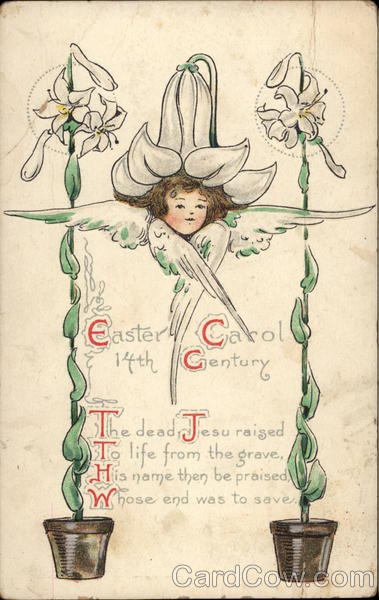 Easter Carol
14th Century
The dead, Jesu raised
To life from the grave,
His name then be praised,
Whose end was to save.
CardCow.com